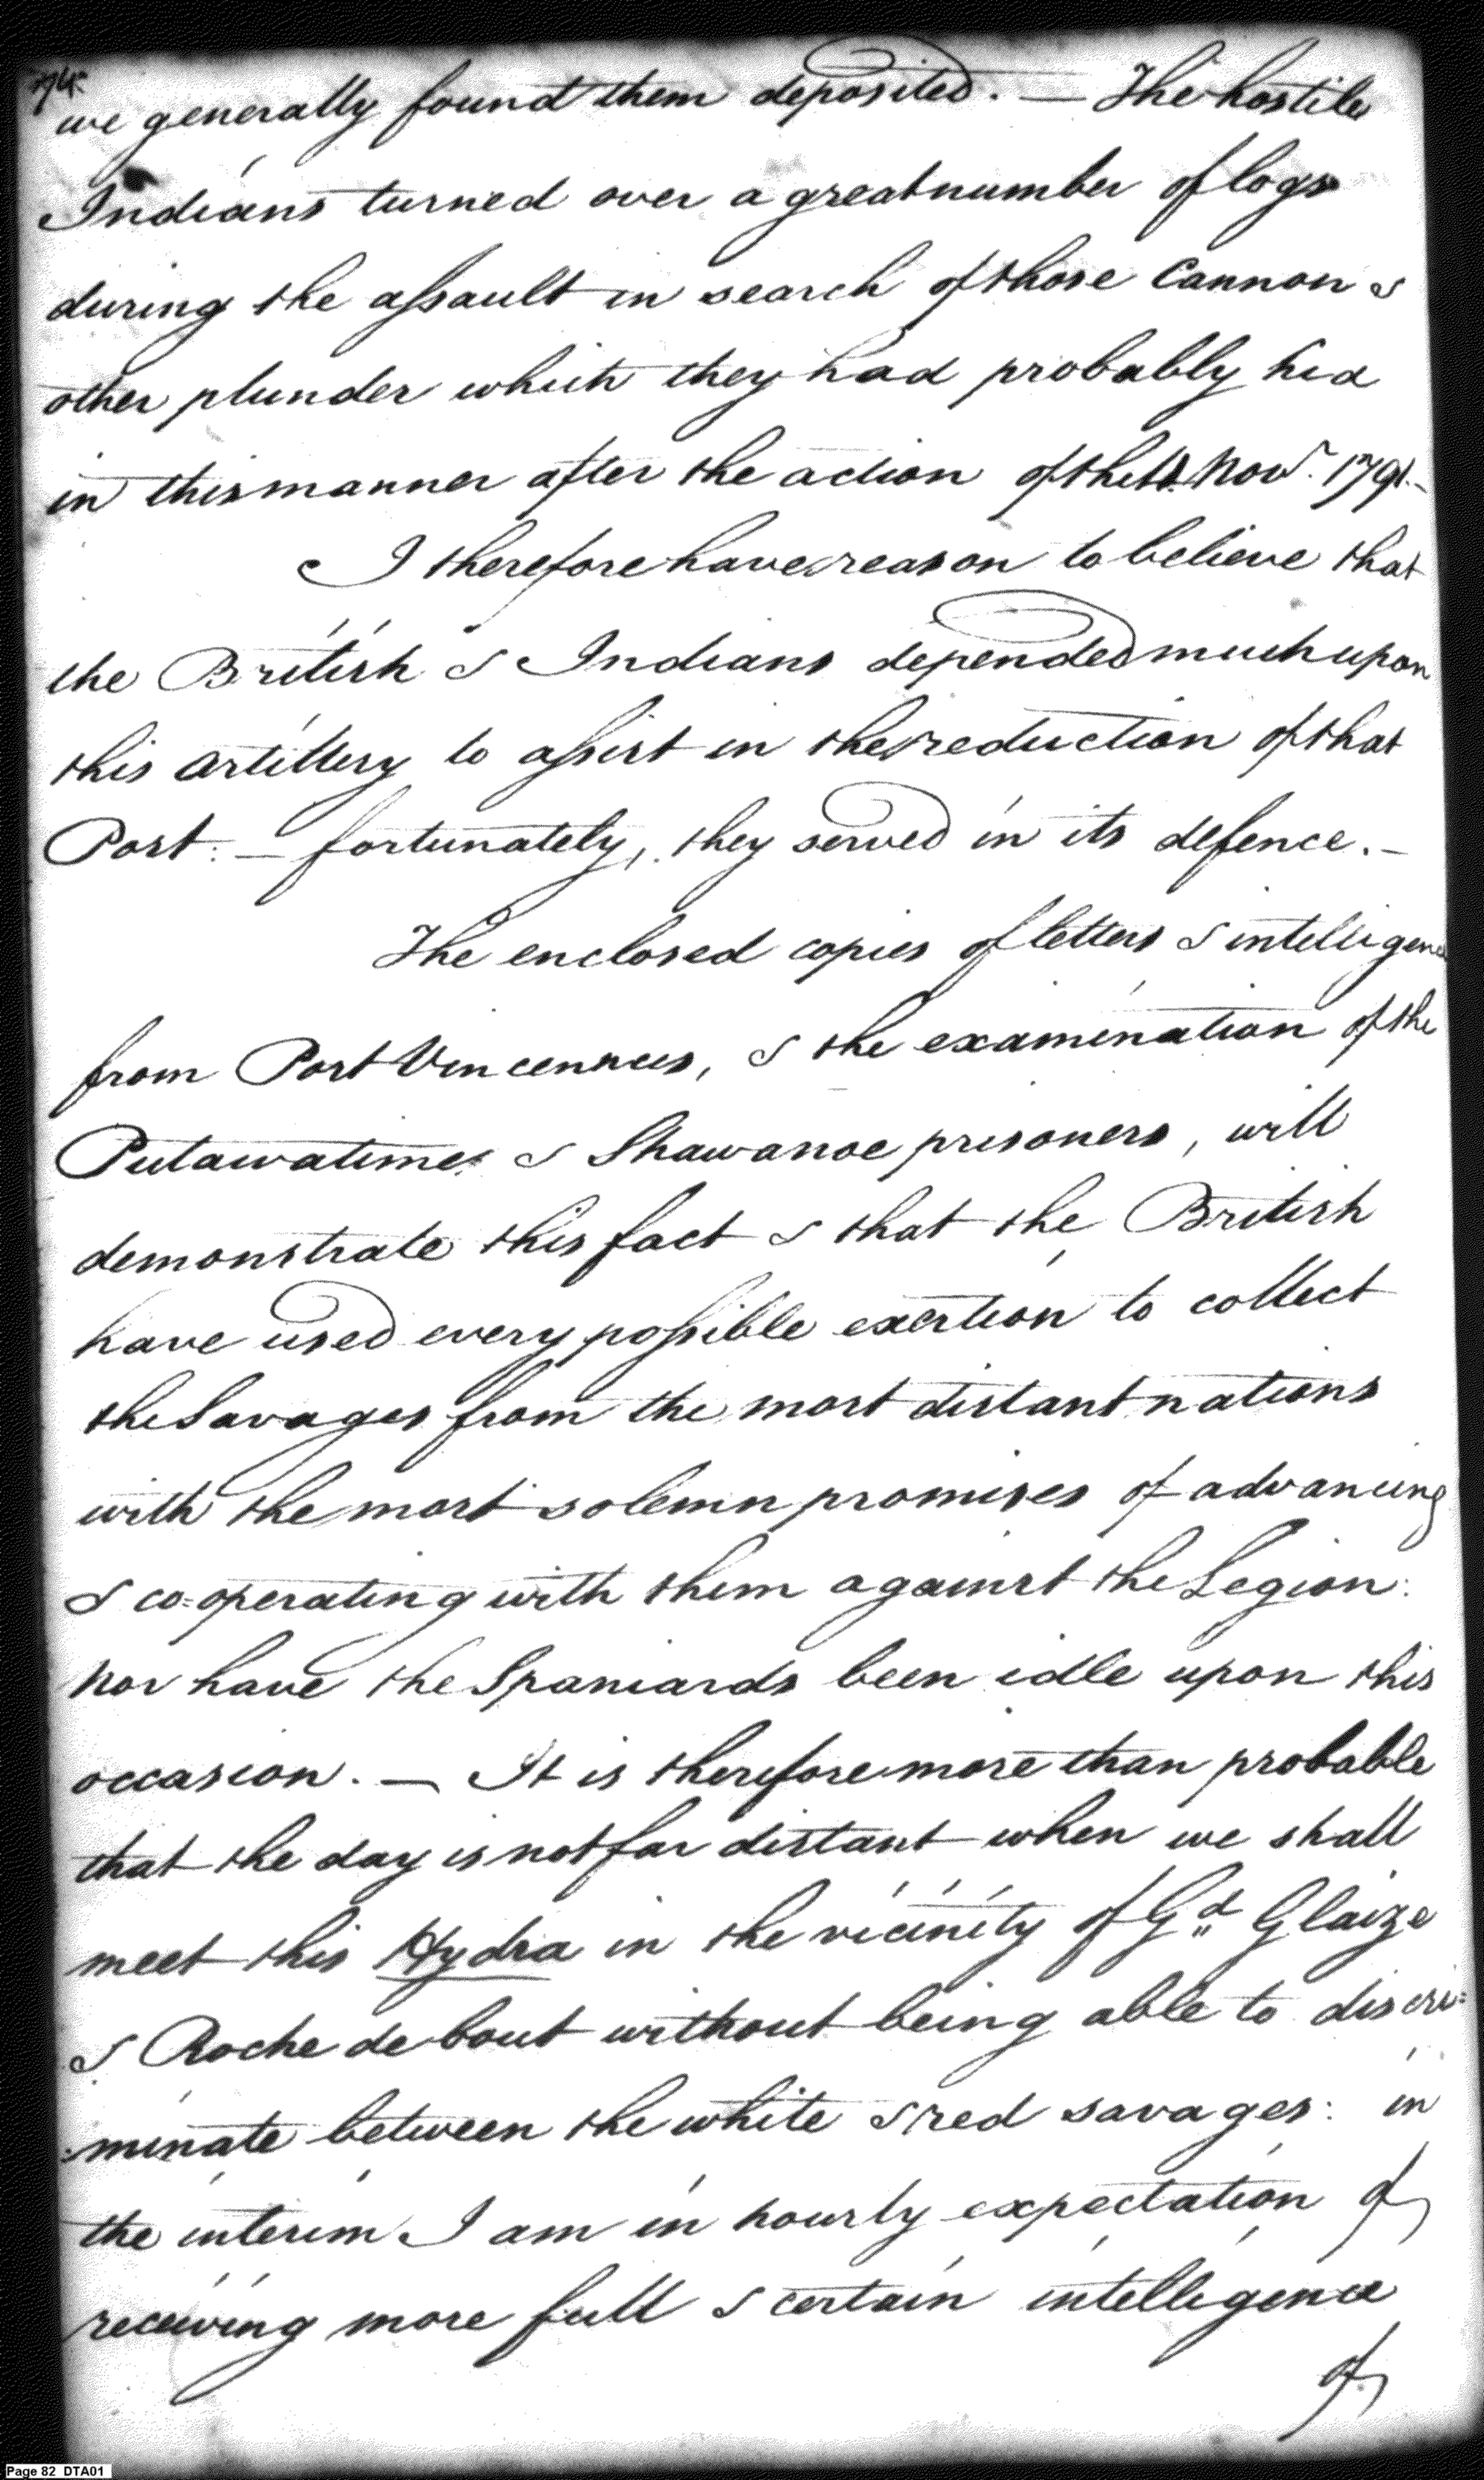 74.
we generally found them deposited. — The hostile
Indians turned over a great number of logs
during the assault in search of those Cannon &
other plunder which they had probably hid
in this manner after the action of the 4. Nov.r 1791.-
I therefore have reason to believe that
the British & Indians depended much upon
this artillery to assist in the reduction of that
Post: — fortunately, they served in its defence. —
The enclosed copies of letters & intelligence
from Post Vincennes, & the examination of the
Putawatime & Shawanoe prisoners, will
demonstrate this fact & that the British
have used every possible exertion to collect
the Savages from the most distant nations
with the most solemn promises of advancing
& co=operating with them against the Legion:
nor have the Spaniards been idle upon this
occasion. — It is therefore more than probable
that the day is not far distant when we shall
meet this Hydra in the vicinity of G.d Glaize
& Roche de bout without being able to discri=
=minate between the white & red savages: in
the interim I am in hourly expectation of
receiving more full & certain intelligence
of
Page 82 DTA01